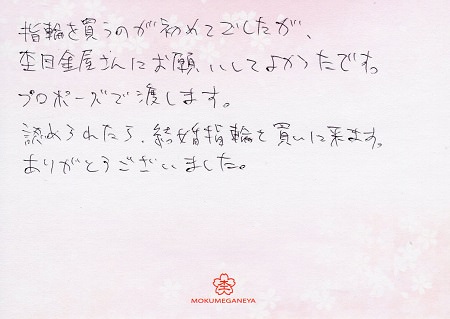 指輪を買うのが初めてでしたが、
杢目金屋さんにお願いしてよかったです。
プロポーズで渡します。
認められたら、結婚指輪を買いに来ます。
ありがとうございました。
杢
MOKUMEGANEYA